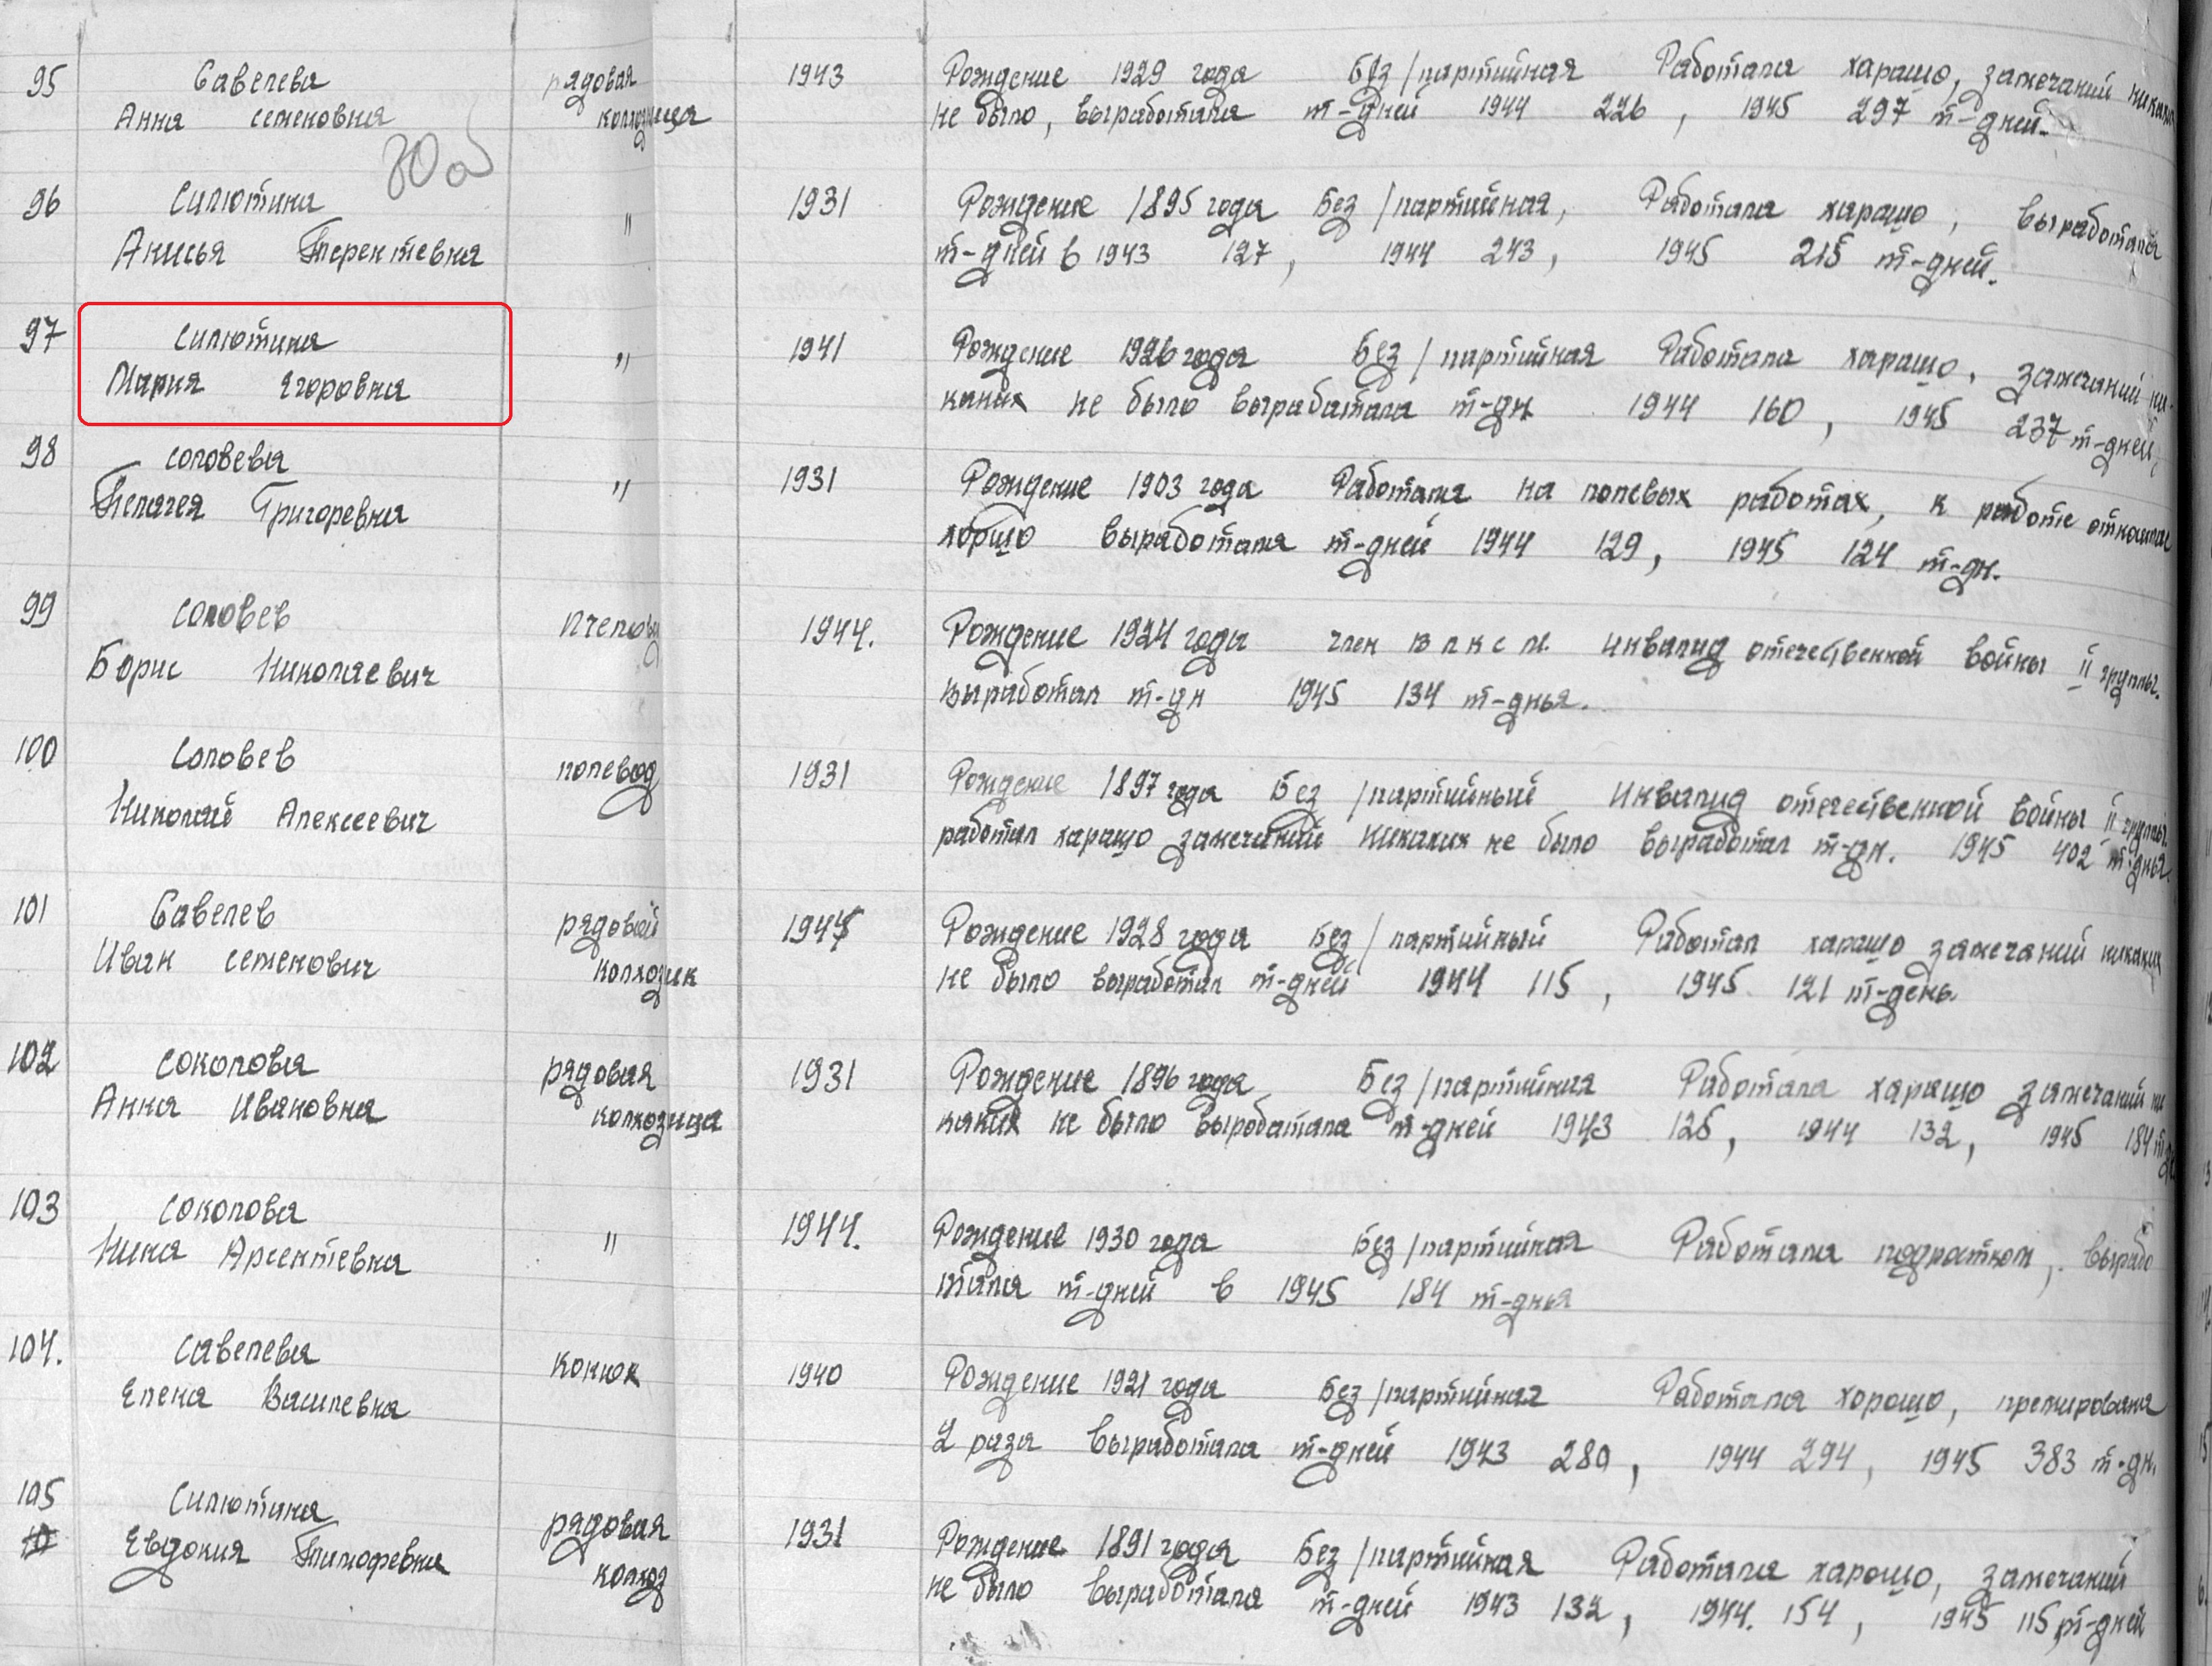 95 Савелева рядовая 1943 Рождение 1929 года Без/партийная Работала харашо, замечаний никаких
Анна семеновна колхозница не было, выработала т-дней 1944 226, 1945 297 т-дней.
80об
96 Силютина " 1931 Рождение 1895 года Без/партийная, Работала харашо, выработала
Анисья Терентевна т-дней в 1943 127, 1944 243, 1945 215 т-дней.
97 Силютина " 1941 Рождение 1926 года Без/партийная Работала харашо, замечаний ни-
Мария Егоровна каких не было вырабатала т-дн 1944 160, 1945 237 т-дней,
98 Соловева " 1931 Рождение 1903 года Работала на полевых работах, к работе
Пелагея Григоревна хоршо выработала т-дней 1944 129, 1945 124 т-дн.
99 Соловев Пчеловод 1944. Рождение 1924 года член ВЛКСМ. инвалид отечественной войны II группы.
Борис Николаевич выработал т-дн 1945 134 т-дня.
100 Соловев полевод 1931 Рождение 1897 года Без/партийный Инвалид отечественной войны II группы.
Николай Алексеевич работал харашо замечаний никаких не было выработал т-дн. 1945 402 т-дня.
101 Савелев рядовой 1944 Рождение 1928 года Без/партийный Работал харашо замечаний никаких
Иван семенович колхозник не было выработал т-дней 1944 115, 1945 121 т-день.
102 Соколова рядовая 1931 Рождение 1896 года Без/партийная Работала харашо замечаний ни
Анна Ивановна колхозница каких не было выробатала т-дней 1943 125, 1944 132, 1945 184
103 Соколова " 1944. Рождение 1930 года Без/партийная Работала вырабо
Нина Арсентевна тала т-дней в 1945 184 т-дня
104. Савелева Конюх 1940 Рождение 1921 года Без/партийная Работала хорошо, премирована
Елена Василевна 2 раза выработала т-дней 1943 280, 1944 294, 1945 383 т-дн.
105 Силютина рядовая 1931 Рождение 1891 года Без/партийная Работала харошо, замечаний
Евдокия Тимофевна колхоз не было выработала т-дней 1943 132, 1944. 154, 1945 115 т-дней